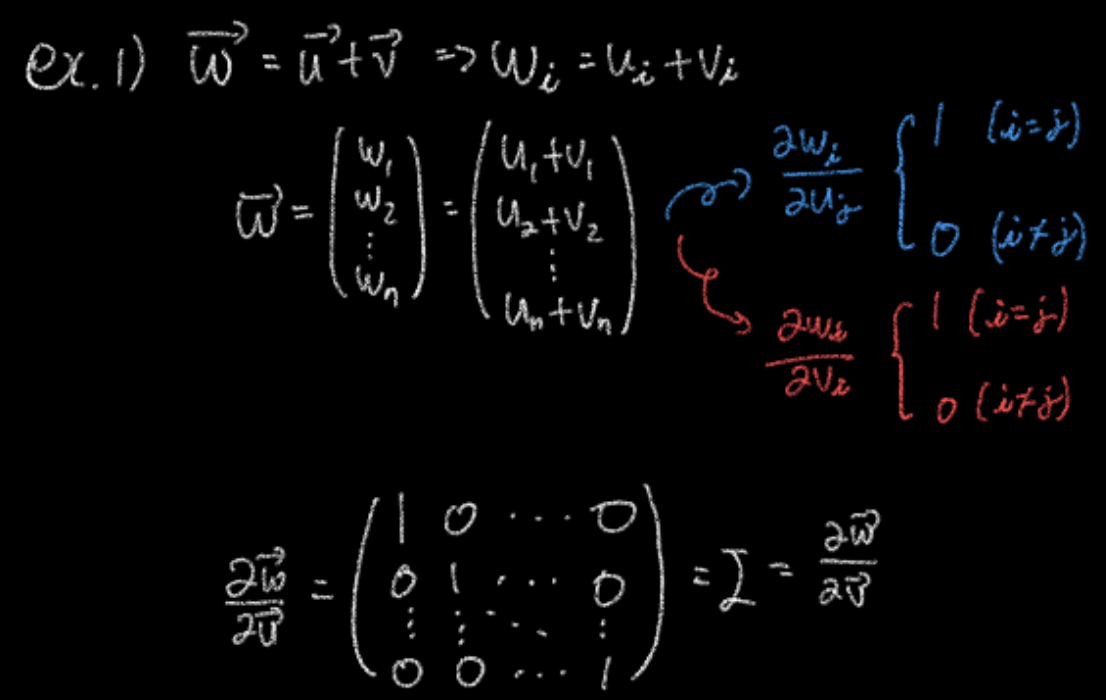 ex. 1) w⃗ = u⃗ + v⃗ ⇒ wᵢ = uᵢ + vᵢ
w⃗ = (w₁ w₂ ⋮ wₙ) = (u₁+v₁ u₂+v₂ ⋮ uₙ+vₙ)
∂wᵢ/∂uⱼ { 1 (i=j)
0 (i≠j)
∂wᵢ/∂vᵢ { 1 (i=j)
0 (i≠j)
∂w⃗/∂v⃗ = (1 0 ⋯ 0
0 1 ⋯ 0
⋮ ⋮ ⋱ ⋮
0 0 ⋯ 1) = I = ∂w⃗/∂v⃗